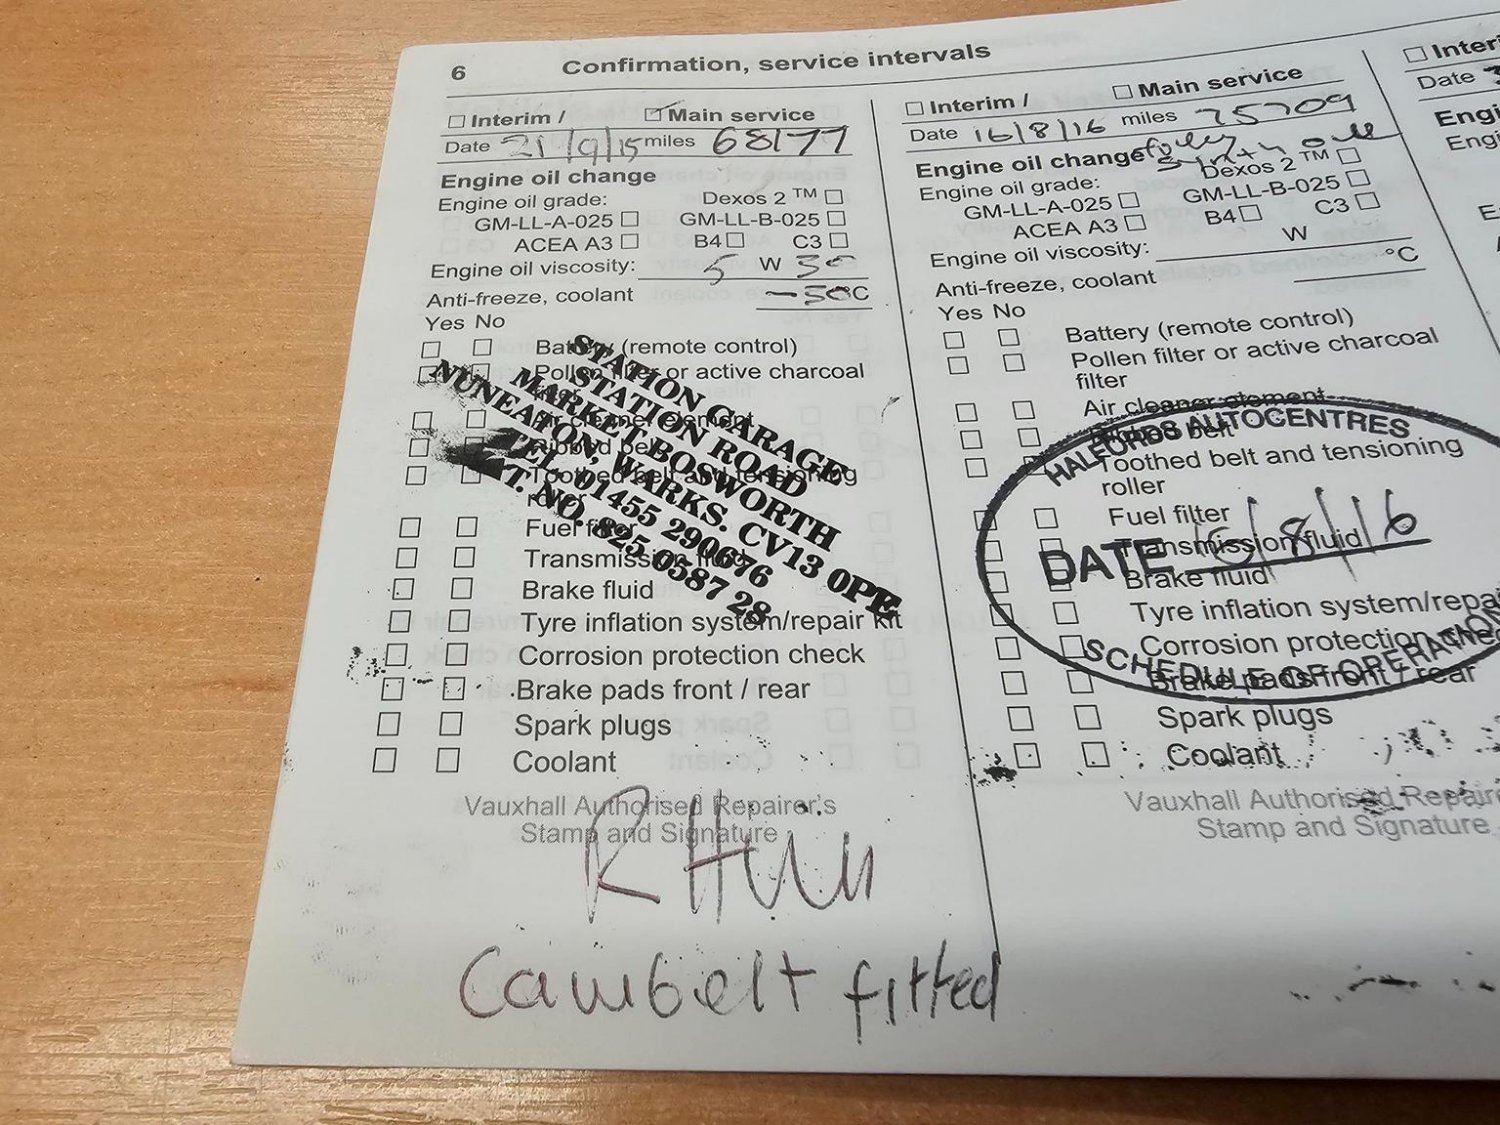 6 Confirmation, service intervals
Interim / Main service
Date 21/9/15 miles 68177
Engine oil change
Engine oil grade: Dexos 2 ™
GM-LL-A-025 GM-LL-B-025
ACEA A3 B4 C3
Engine oil viscosity: 5 W 30
Anti-freeze, coolant -50°C
Yes No
Battery (remote control)
Pollen filter or active charcoal
filter
Air cleaner element
Ribbed belt
Toothed belt and tensioning
roller
Fuel filter
Transmission fluid
Brake fluid
Tyre inflation system/repair kit
Corrosion protection check
Brake pads front / rear
Spark plugs
Coolant
STATION GARAGE
STATION ROAD
MARKET BOSWORTH
NUNEATON, WARKS. CV13 0PE
TEL. 01455 290676
VAT. NO. 825 0587 28
Vauxhall Authorised Repairer's
Stamp and Signature
Cambelt fitted
Interim / Main service
Date 16/8/16 miles 75709
fully synth oil
Engine oil change
Engine oil grade: Dexos 2 ™
GM-LL-A-025 GM-LL-B-025
ACEA A3 B4 C3
Engine oil viscosity: W
Anti-freeze, coolant °C
Yes No
Battery (remote control)
Pollen filter or active charcoal
filter
Air cleaner element
Ribbed belt
Toothed belt and tensioning
roller
Fuel filter
Transmission fluid
Brake fluid
Tyre inflation system/repa
Corrosion protection chec
Brake pads front / rear
Spark plugs
Coolant
HALFORDS AUTOCENTRES
DATE 16/8/16
SCHEDULE OF OPERATION
Vauxhall Authorised Repaire
Stamp and Signature
Inter
Date
Engi
Engi